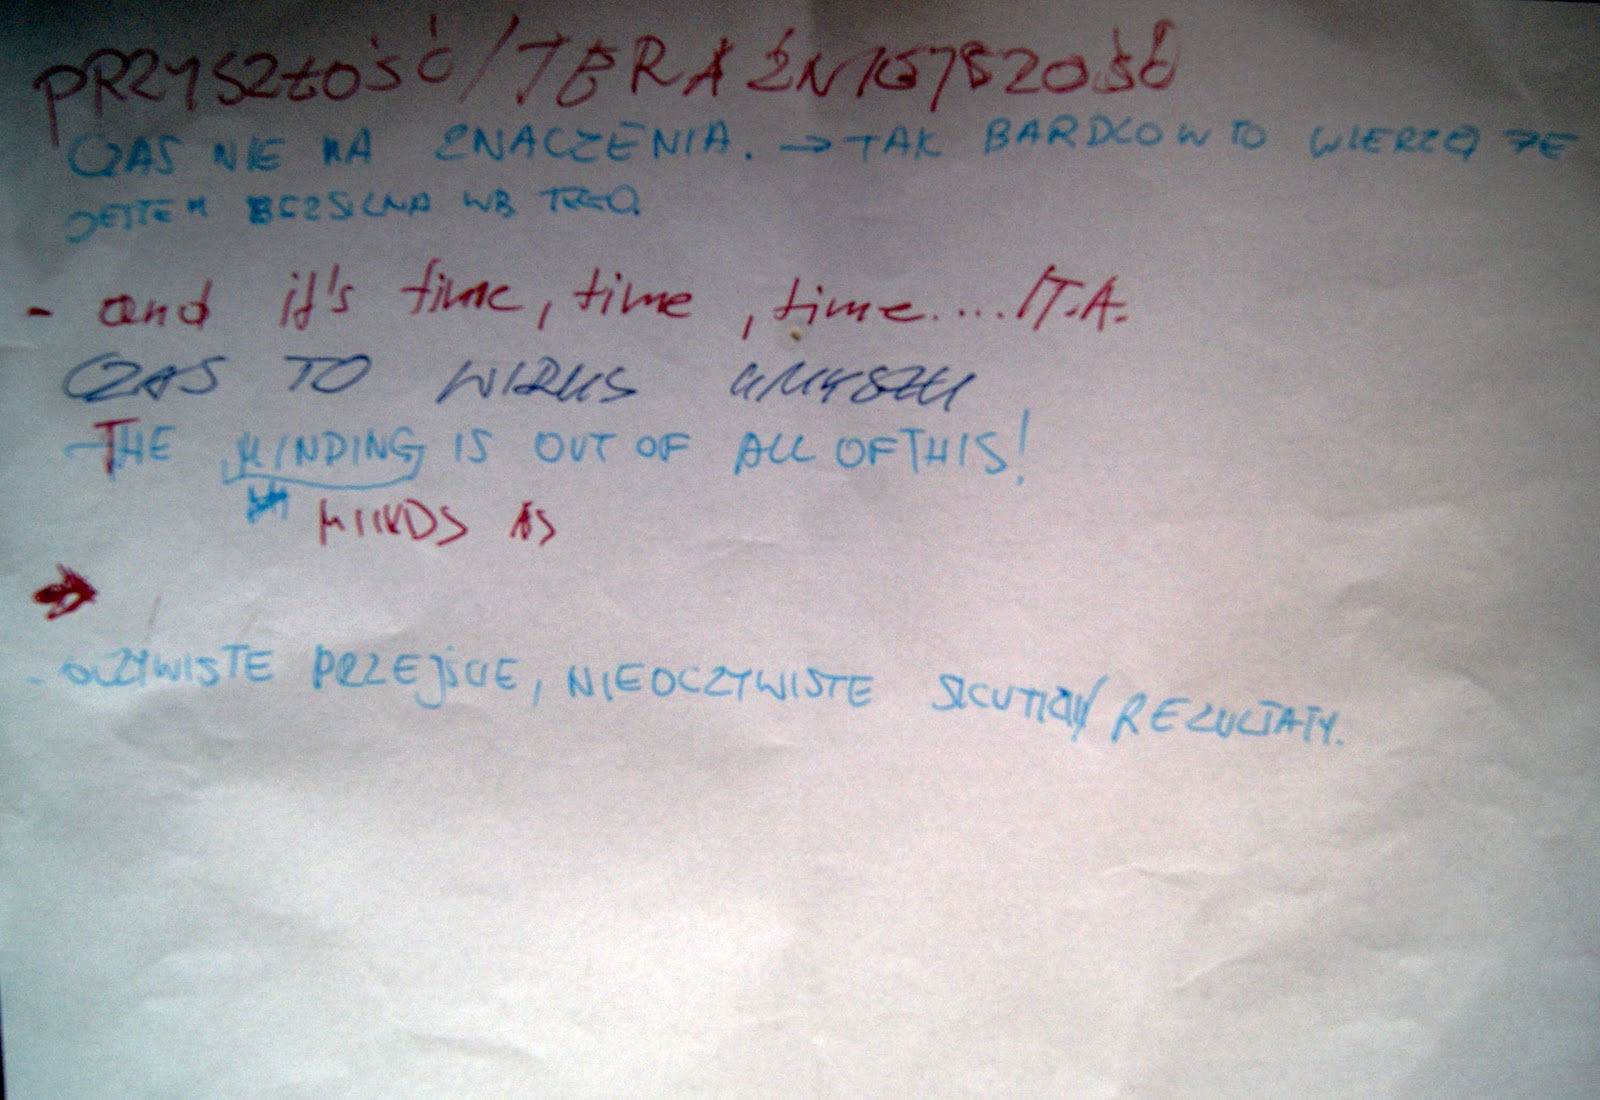 PRZYSZŁOŚĆ/TERAŹNIEJSZOŚĆ
CZAS NIE MA ZNACZENIA. → TAK BARDZO W TO WIERZĘ ŻE
JESTEM BEZSILNA WB. TEGO.
- and it's time, time, time..../T.A.
CZAS TO WIRUS UMYSŁU
- THE MINDING IS OUT OF ALL OF THIS!
MINDS AS
- OCZYWISTE PRZEJŚCIE, NIEOCZYWISTE SKUTKI/ REZULTATY.